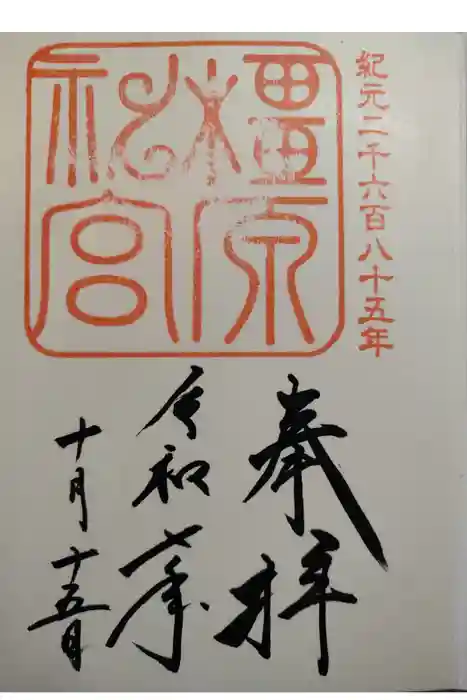 紀元二千六百八十五年
橿原神宮
奉拝
令和七年
十月十五日